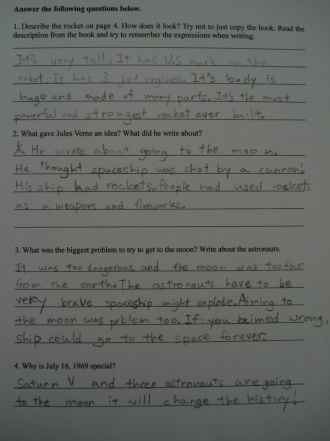 Answer the following questions below.
1. Describe the rocket on page 4. How does it look? Try not to just copy the book. Read the
description from the book and try to remember the expressions when writing.
It's very tall. It has U.S mark on the
roket. It has 3 jet engines. It's body is
huge and made of many parts. It's the most
powerful and strongest rocket ever built.
2. What gave Jules Verne an idea? What did he write about?
He wrote about going to the moon.
He thought spaceship was shot by a cannon!
His ship had rockets. People had used rockets
as a weapons and fireworks.
3. What was the biggest problem to try to get to the moon? Write about the astronauts.
It was too dangerous and the moon was too far
from the earth. The astronauts have to be
very brave spaceship might explode. Aiming to
the moon was prblem too. If you aimed wrong,
ship could go to the space forever.
4. Why is July 16, 1969 special?
Saturn V and three astronauts are going
to the moon it will change the history!